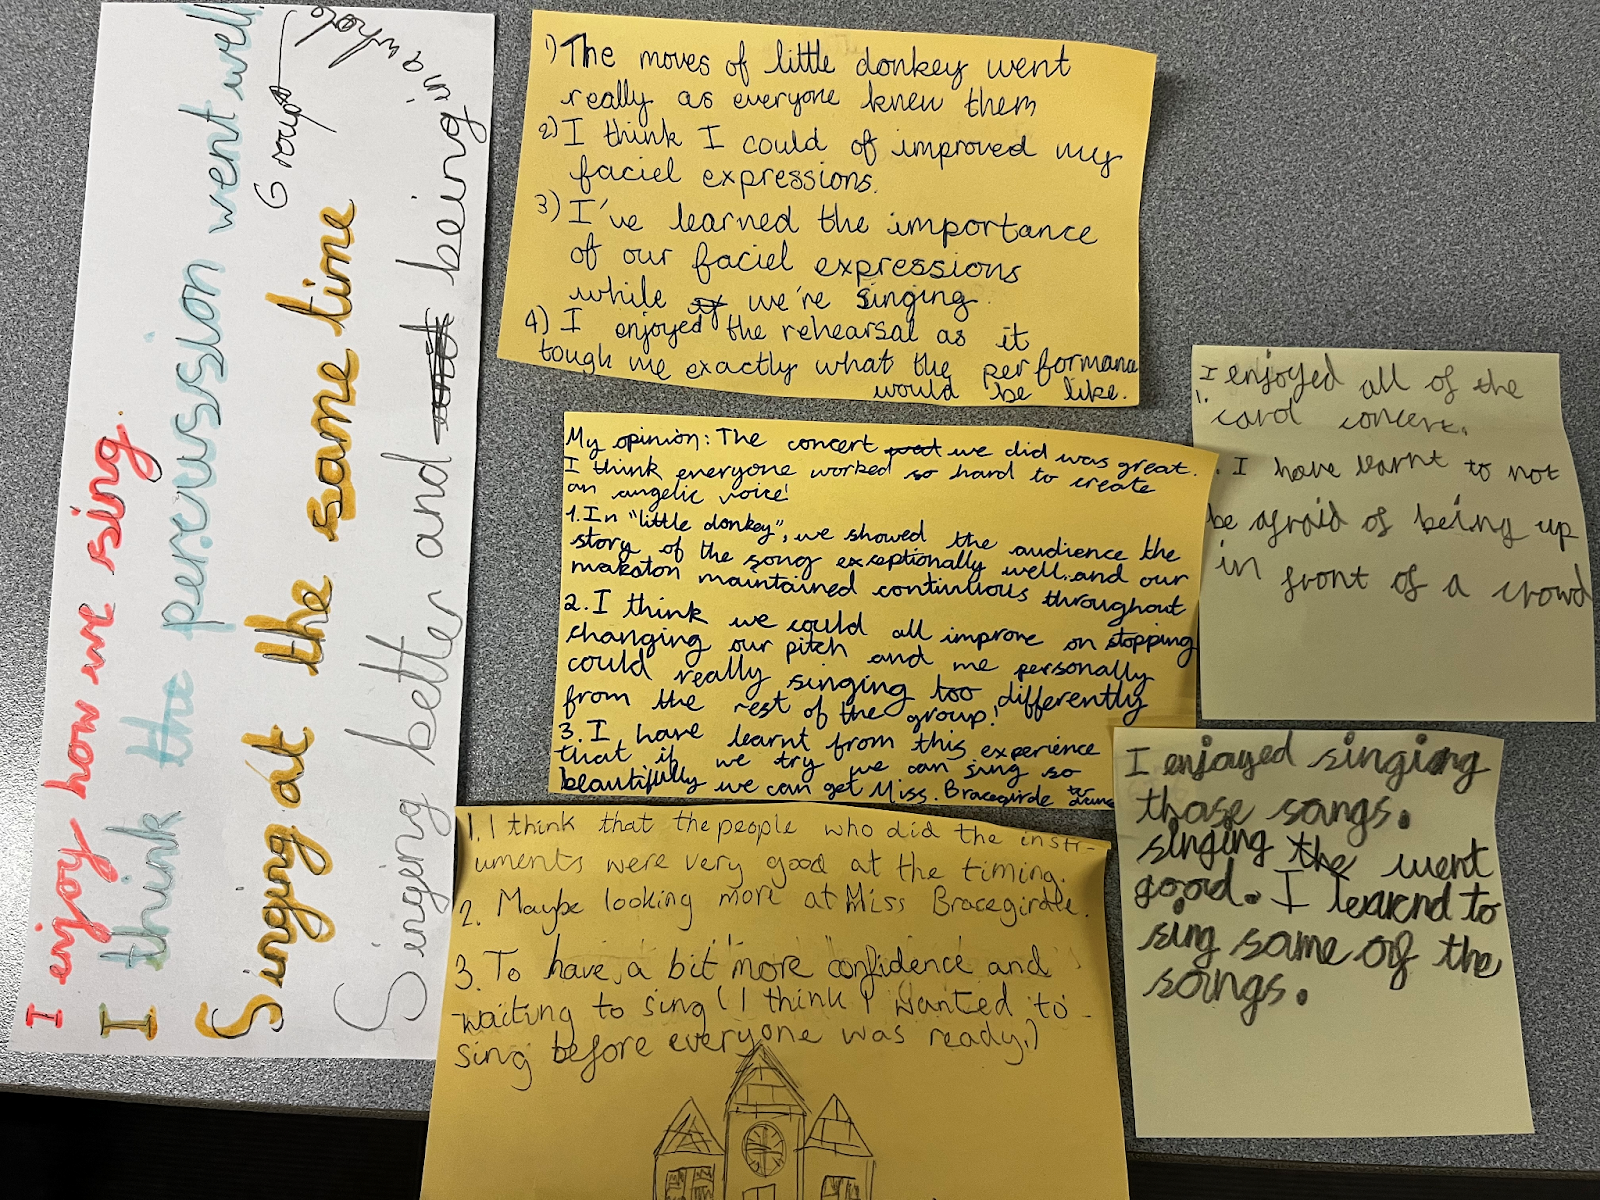 I enjoy how we sing.
I think the percussion went well
Singing at the same time
Singing better and being in a whole
Group
1) The moves of little donkey went
really as everyone knew them
2) I think I could of improved my
faciel expressions.
3) I've learned the importance
of our faciel expressions
while we're singing.
4) I enjoyed the rehearsal as it
tough me exactly what the performance
would be like.
My opinion: The concert we did was great.
I think everyone worked so hard to create
an angelic voice!
1. In "little donkey", we showed the audience the
story of the song exceptionally well and our
makaton maintained continuous throughout
2. I think we could all improve on stopping
changing our pitch and me personally
could really singing too differently
from the rest of the group!
3. I have learnt from this experience
that if we try we can sing so
beautifully we can get Miss. Bracegirdle to
1. I think that the people who did the instr-
uments were very good at the timing.
2. Maybe looking more at Miss Bracegirdle.
3. To have a bit more confidence and
waiting to sing (I think I wanted to
sing before everyone was ready.)
I enjoyed all of the
1. carol concert.
. I have learnt to not
be afraid of being up
in front of a crowd
I enjoyed singing
those songs.
singing the went
good. I learnd to
sing some of the
songs.